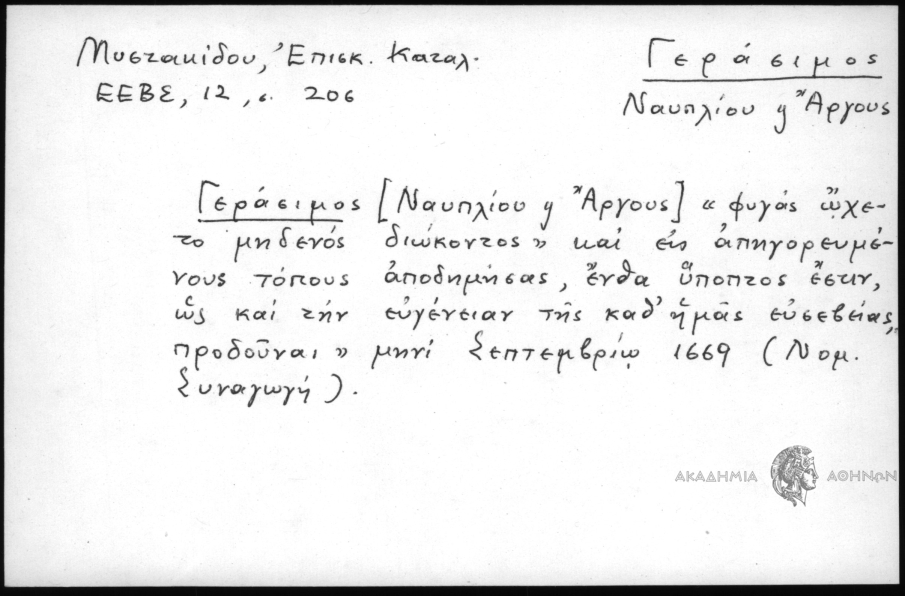 Μυστακίδου, Ἐπισκ. Καταλ.
ΕΕΒΣ, 12, σ. 206
Γεράσιμος
Ναυπλίου ἤ Ἄργους
Γεράσιμος [Ναυπλίου ἤ Ἄργους] « φυγάς ᾤχε-
το μηδενός διώκοντος » καί εἰς ἀπηγορευμέ-
νους τόπους ἀποδημήσας, ἔνθα ὕποπτος ἔστιν,
ὡς καί τήν εὐγένειαν τῆς καθ' ἡμᾶς εὐσεβείας,
προδοῦναι » μηνί Σεπτεμβρίῳ 1669 ( Νομ.
Συναγωγή ).
ΑΚΑΔΗΜΙΑ ΑΘΗΝΩΝ